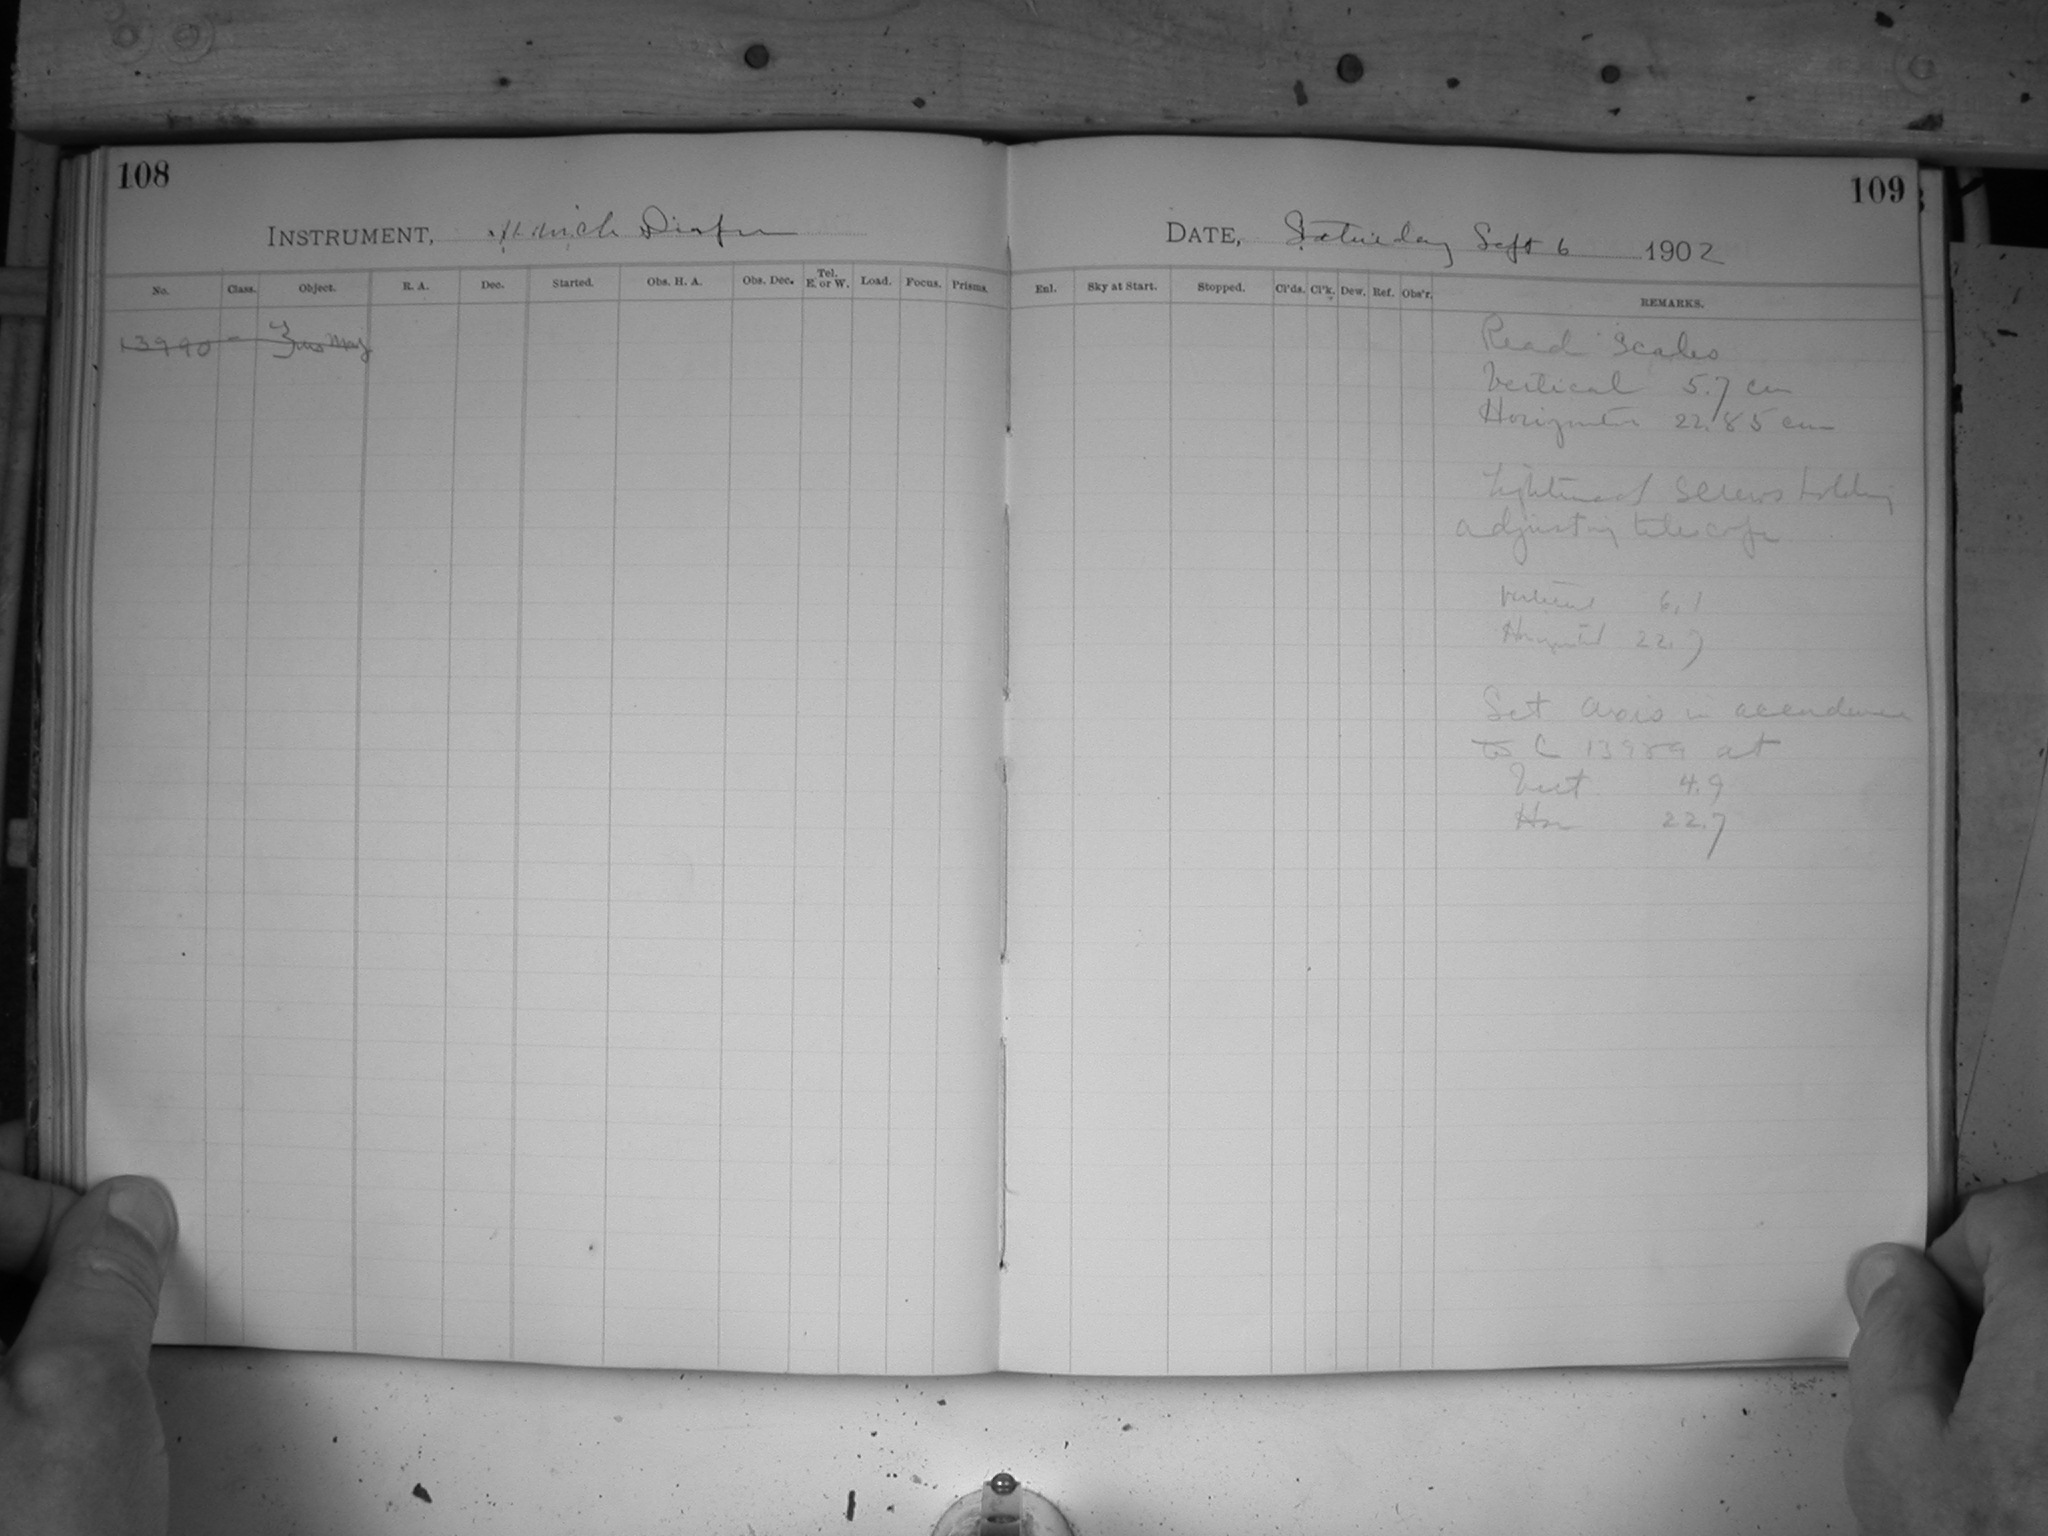 108
INSTRUMENT, 11 inch Draper
No. Class. Object. R. A. Dec. Started. Obs. H. A. Obs. Dec. Tel. E. or W. Load. Focus. Prisms.
13990 -
109
DATE, Saturday Sept 6 1902
Enl. Sky at Start. Stopped. Cl'ds. Cl'k. Dew. Ref. Obs'r. REMARKS.
Read Scales
Vertical 5.7 cm
Horizontal 22.85 cm
Tightened screws holding
adjusting telescope
Vertical 6.1
Horizontal 22.7
Set axis in accordance
to C 13989 at
Vert 4.9
Hor 22.7